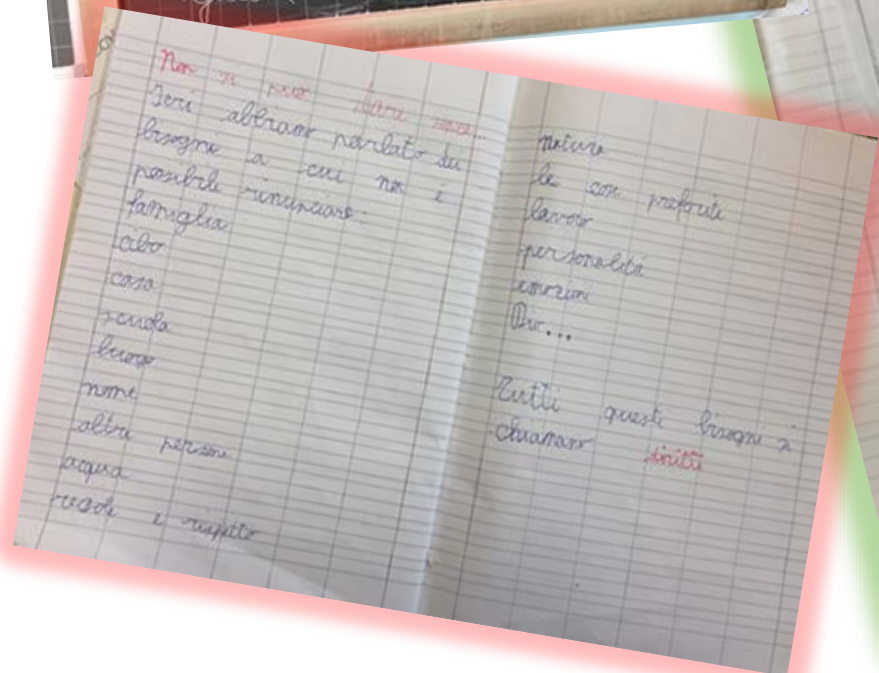 Non si può stare senza...
Ieri abbiamo parlato di
bisogni a cui non è
possibile rinunciare:
famiglia
cibo
casa
scuola
luogo
nome
altre persone
acqua
regole e rispetto
natura
le cose preferite
lavoro
personalità
emozioni
Dio...
Tutti questi bisogni si
chiamano diritti